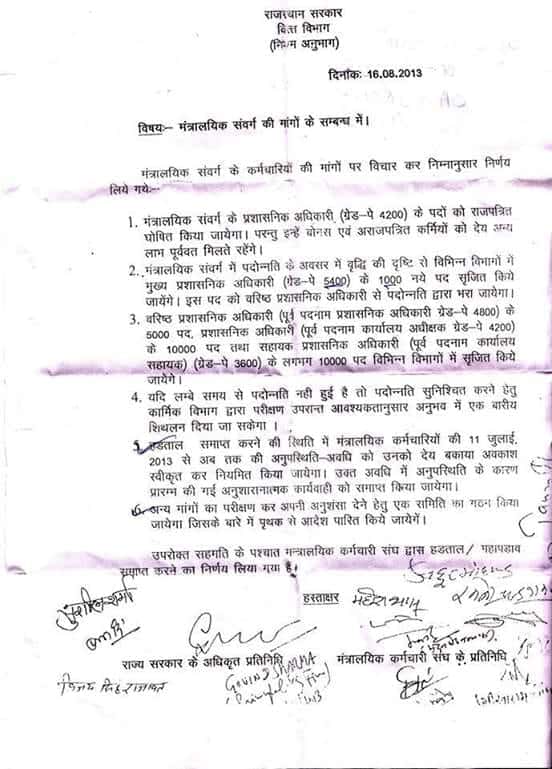 राजस्थान सरकार
वित्त विभाग
(नियम अनुभाग)
दिनांकः 16.08.2013
विषयः– मंत्रालयिक संवर्ग की मांगों के सम्बन्ध में।
मंत्रालयिक संवर्ग के कर्मचारियों की मांगों पर विचार कर निम्नानुसार निर्णय
लिये गयेः–
1. मंत्रालयिक संवर्ग के प्रशासनिक अधिकारी (ग्रेड–पे 4200) के पदों को राजपत्रित
घोषित किया जायेगा। परन्तु इन्हें बोनस एवं अराजपत्रित कर्मियों को देय अन्य
लाभ पूर्ववत मिलते रहेंगे।
2. मंत्रालयिक संवर्ग में पदोन्नति के अवसर में वृद्धि की दृष्टि से विभिन्न विभागों में
मुख्य प्रशासनिक अधिकारी (ग्रेड–पे 5400) के 1000 नये पद सृजित किये
जायेंगे। इस पद को वरिष्ठ प्रशासनिक अधिकारी से पदोन्नति द्वारा भरा जायेगा।
3. वरिष्ठ प्रशासनिक अधिकारी (पूर्व पदनाम प्रशासनिक अधिकारी ग्रेड–पे 4800) के
5000 पद, प्रशासनिक अधिकारी (पूर्व पदनाम कार्यालय अधीक्षक ग्रेड–पे 4200)
के 10000 पद तथा सहायक प्रशासनिक अधिकारी (पूर्व पदनाम कार्यालय
सहायक) (ग्रेड–पे 3600) के लगभग 10000 पद विभिन्न विभागों में सृजित किये
जायेगे।
4. यदि लम्बे समय से पदोन्नति नही हुई है तो पदोन्नति सुनिश्चित करने हेतु
कार्मिक विभाग द्वारा परीक्षण उपरान्त आवश्यकतानुसार अनुभव में एक बारीय
शिथलन दिया जा सकेगा ।
5. हडताल समाप्त करने की स्थिति में मंत्रालयिक कर्मचारियों की 11 जुलाई,
2013 से अब तक की अनुपस्थिति–अवधि को उनको देय बकाया अवकाश
स्वीकृत कर नियमित किया जायेगा। उक्त अवधि में अनुपस्थिति के कारण
प्रारम्भ की गई अनुशासनात्मक कार्यवाही को समाप्त किया जायेगा।
6. अन्य मांगों का परीक्षण कर अपनी अनुशंसा देने हेतु एक समिति का गठन किया
जायेगा जिसके बारे में पृथक से आदेश पारित किये जायेगें।
उपरोक्त सहमति के पश्चात मन्त्रालयिक कर्मचारी संघ द्वारा हडताल/ महापडाव
समाप्त करने का निर्णय लिया गया है।
हस्ताक्षर
राज्य सरकार के अधिकृत प्रतिनिधि
मंत्रालयिक कर्मचारी संघ के प्रतिनिधि
GOVIND SHARMA